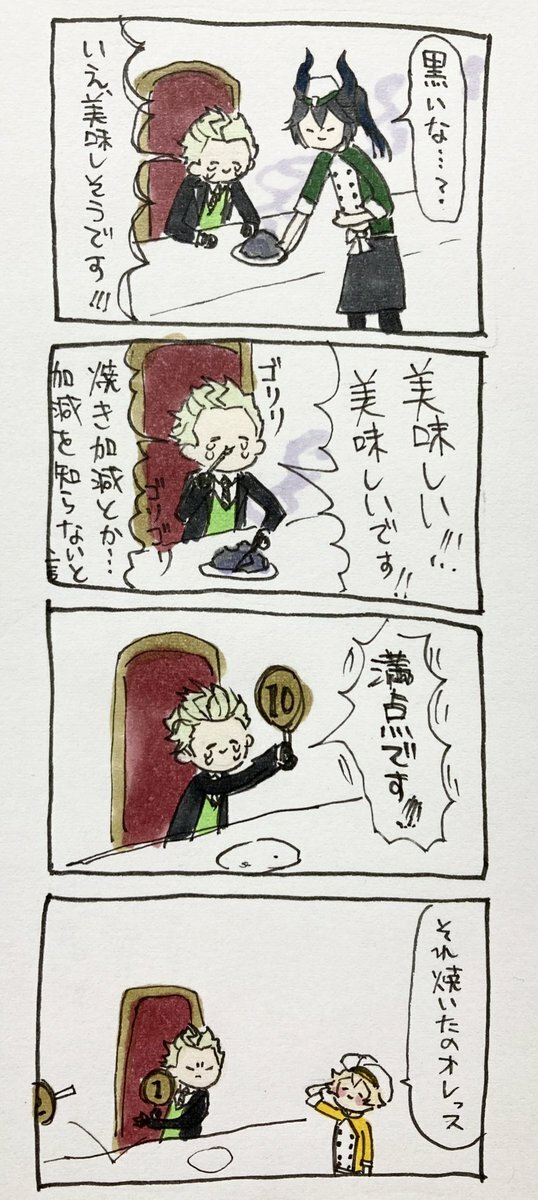 黒いな…?
いえ、美味しそうです!!!
美味しい!!!
美味しいです!!
ゴリリ
ゴリゴリ
焼き加減とか…
加減を知らないと
満点です!!!
10
それ焼いたのオレっス
1